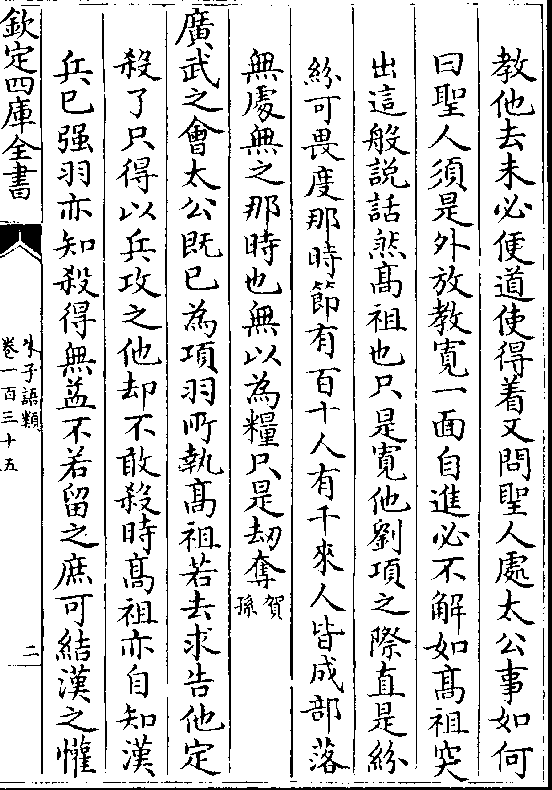 教他去未必便道使得着又問聖人處太公事如何
曰聖人須是外放教寛一面自進必不解如髙祖突
出這般說話然髙祖也只是寛他劉項之際直是紛
紛可畏度那時節有百十人有千來人皆成部落
無處無之那時也無以為糧只是刼奪賀孫
廣武之會太公既已為項羽所執髙祖若去求告他定
殺了只得以兵攻之他却不敢殺時髙祖亦自知漢
兵已强羽亦知殺得無益不若留之庶可結漢之懽
欽定四庫全書
朱子語類
卷一百三十五
二